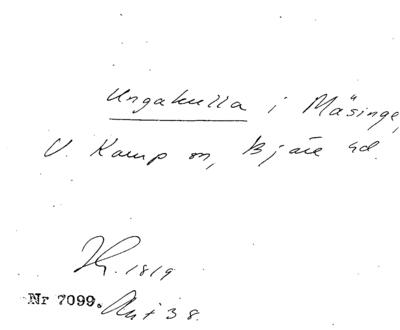 Ungakulla i Mäsinge,
V. Karup sn, Bjäre hd.
1819
Nr 7099. Akt 38.